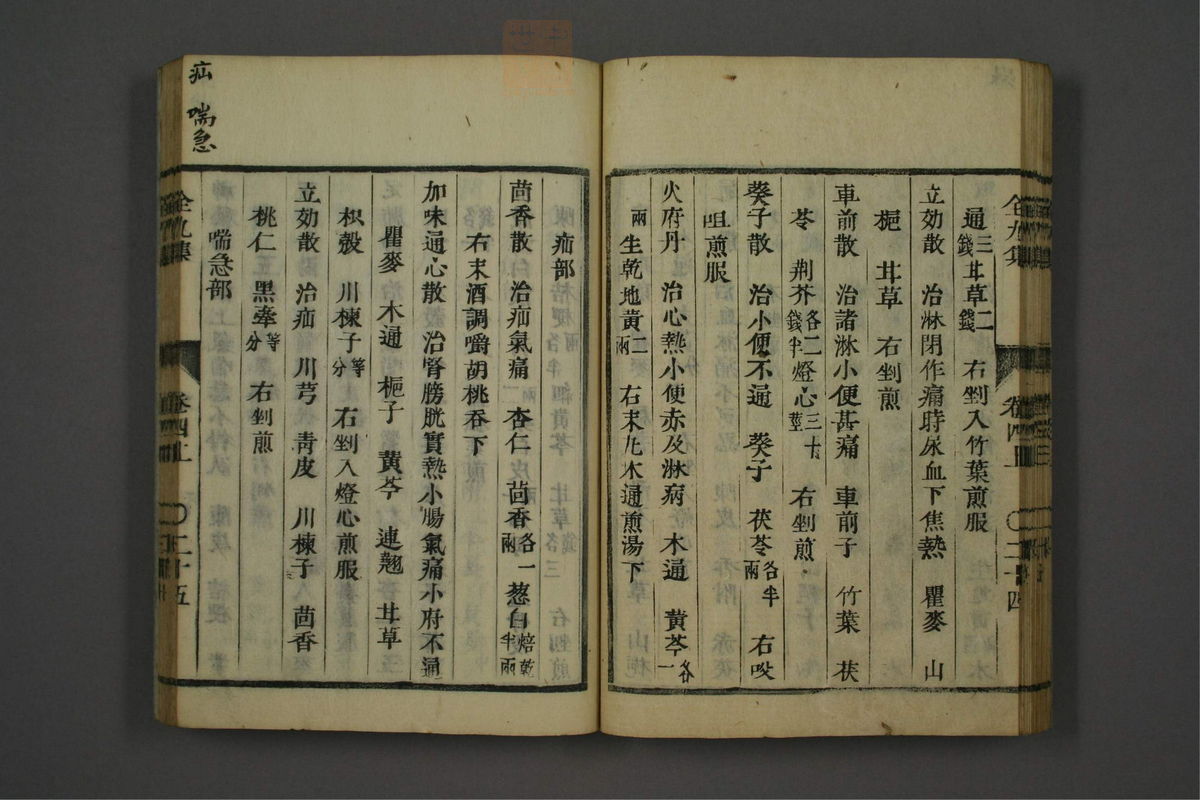 通三錢 甘草二錢 右剉入竹葉煎服
立効散 治淋閉作痛時尿血下焦熱 瞿麥 山
梔 甘草 右剉煎
車前散 治諸淋小便甚痛 車前子 竹葉 茯
苓 荆芥各二錢半 燈心三十莖 右剉煎
葵子散 治小便不通 葵子 茯苓各半兩 右㕮
咀煎服
火府丹 治心熱小便赤及淋病 木通 黄芩各一
兩 生乾地黄二兩 右末丸木通煎湯下
全九集 卷四上 〇二十四
疝部
茴香散 治疝氣痛 杏仁 茴香各一兩 葱白焙乾半兩
右末酒調嚼胡桃吞下
加味通心散 治腎膀胱實熱小腸氣痛小府不通
瞿麥 木通 梔子 黄芩 連翹 甘草
枳殼 川楝子等分 右剉入燈心煎服
立効散 治疝 川芎 靑皮 川楝子 茴香
桃仁 黑牽等分 右剉煎
喘急部
全九集 卷四上 〇二十五
疝 喘急